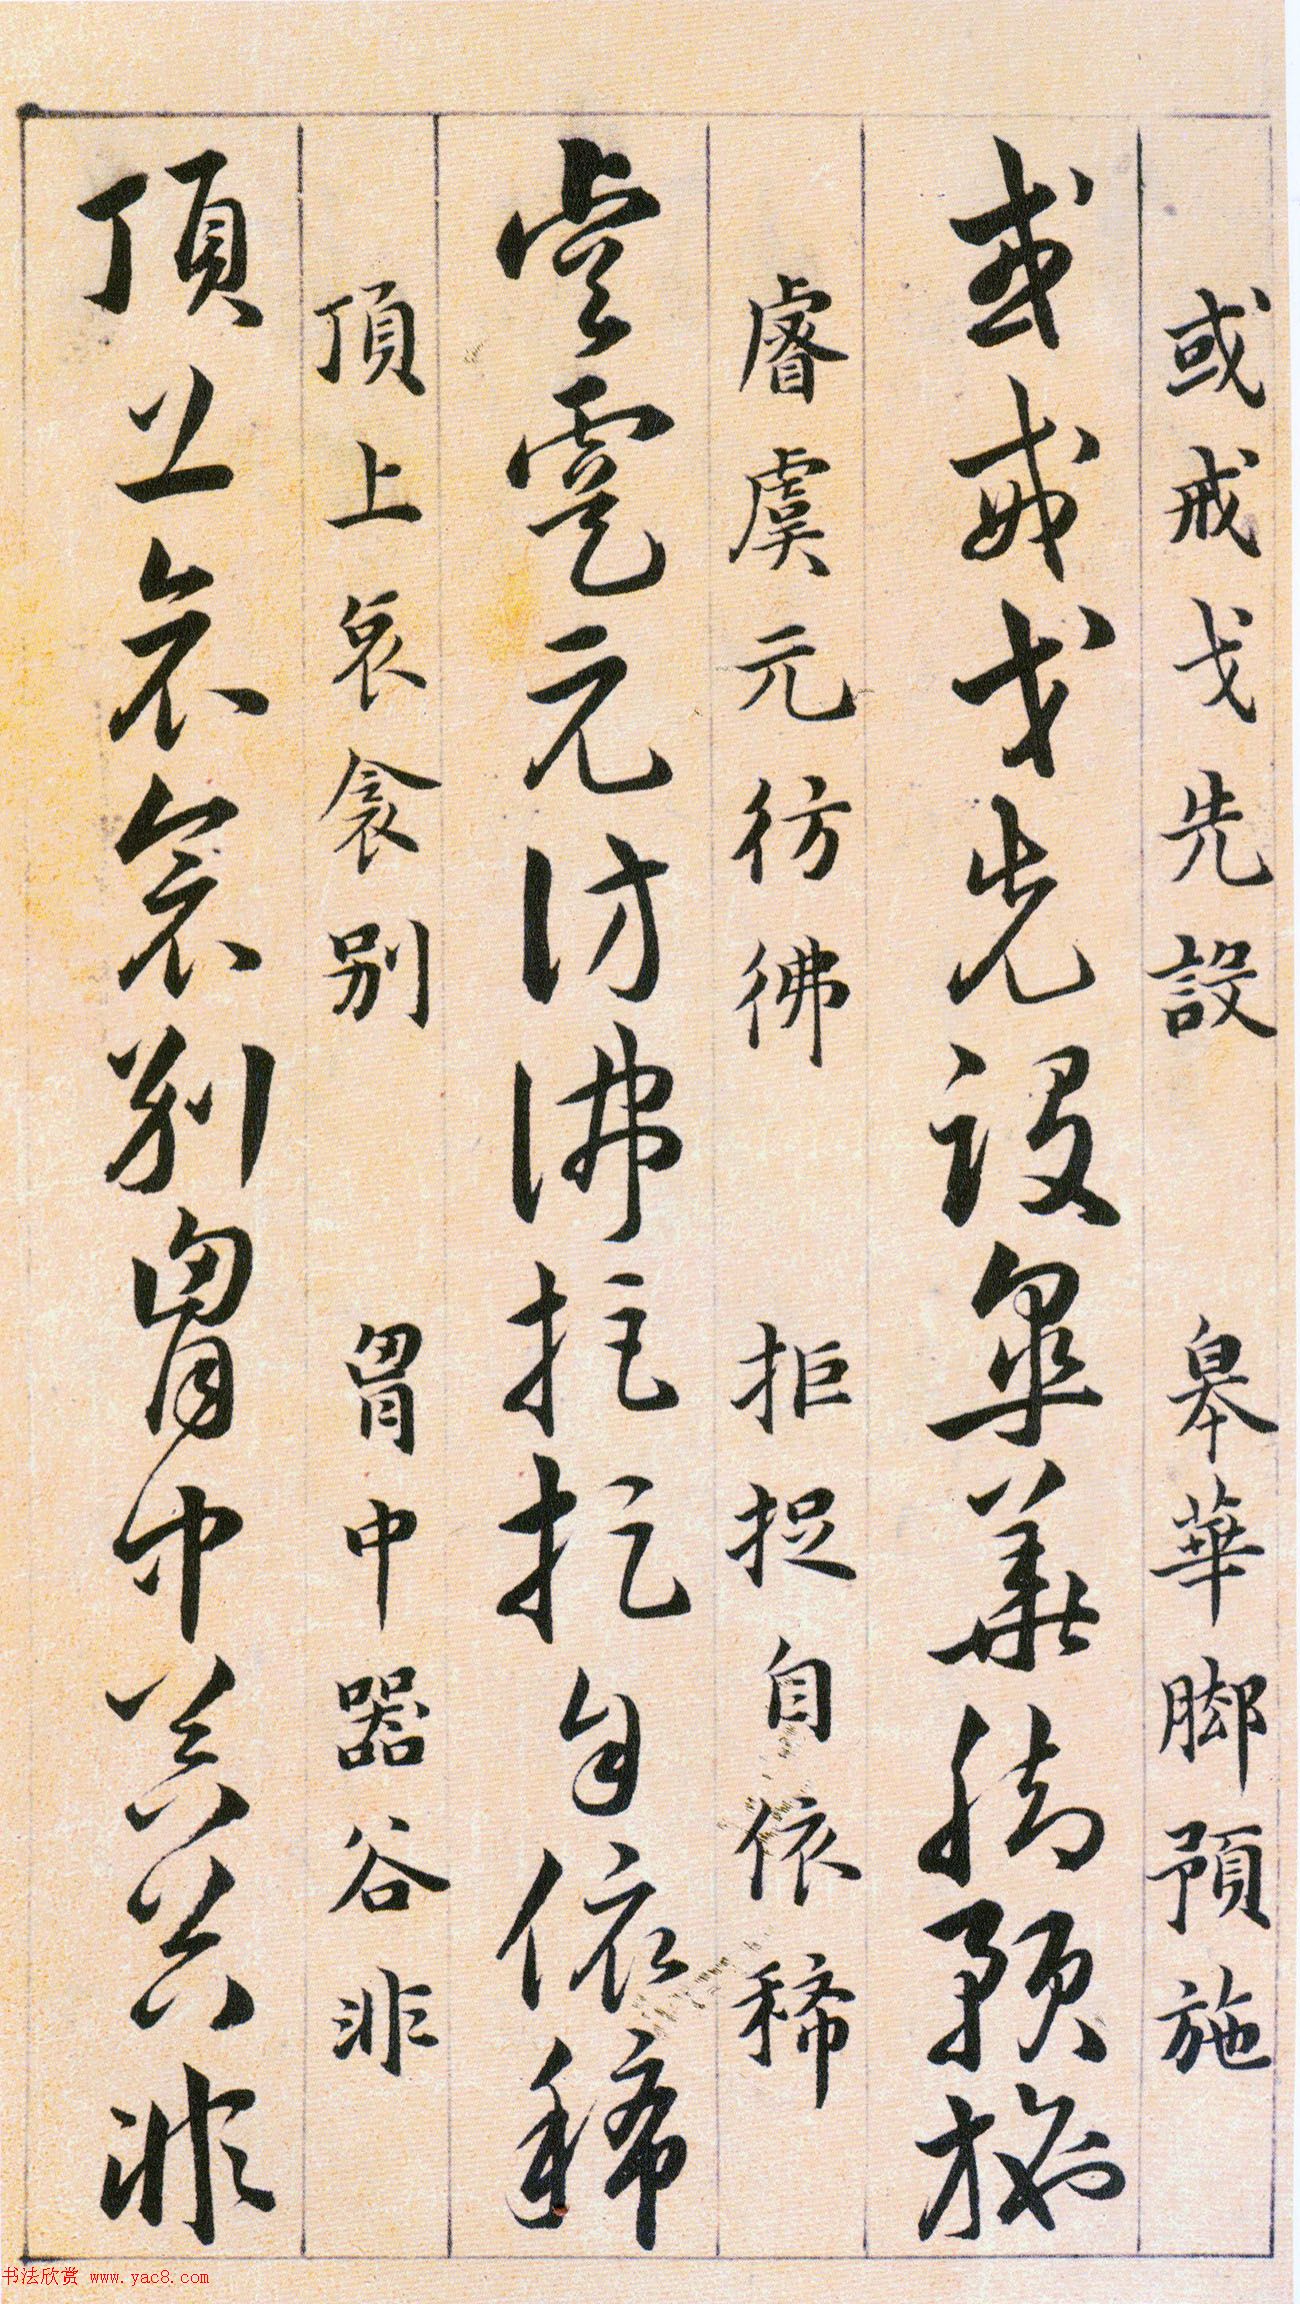 或戒戈先設　皋華脚預施
或戒戈先設皋華脚預施
睿虞元彷彿　拒捉自依稀
睿虞元彷彿拒捉自依稀
頂上哀衾別　胷中器谷非
頂上哀衾別胷中器谷非
书法欣赏 www.yac8.com